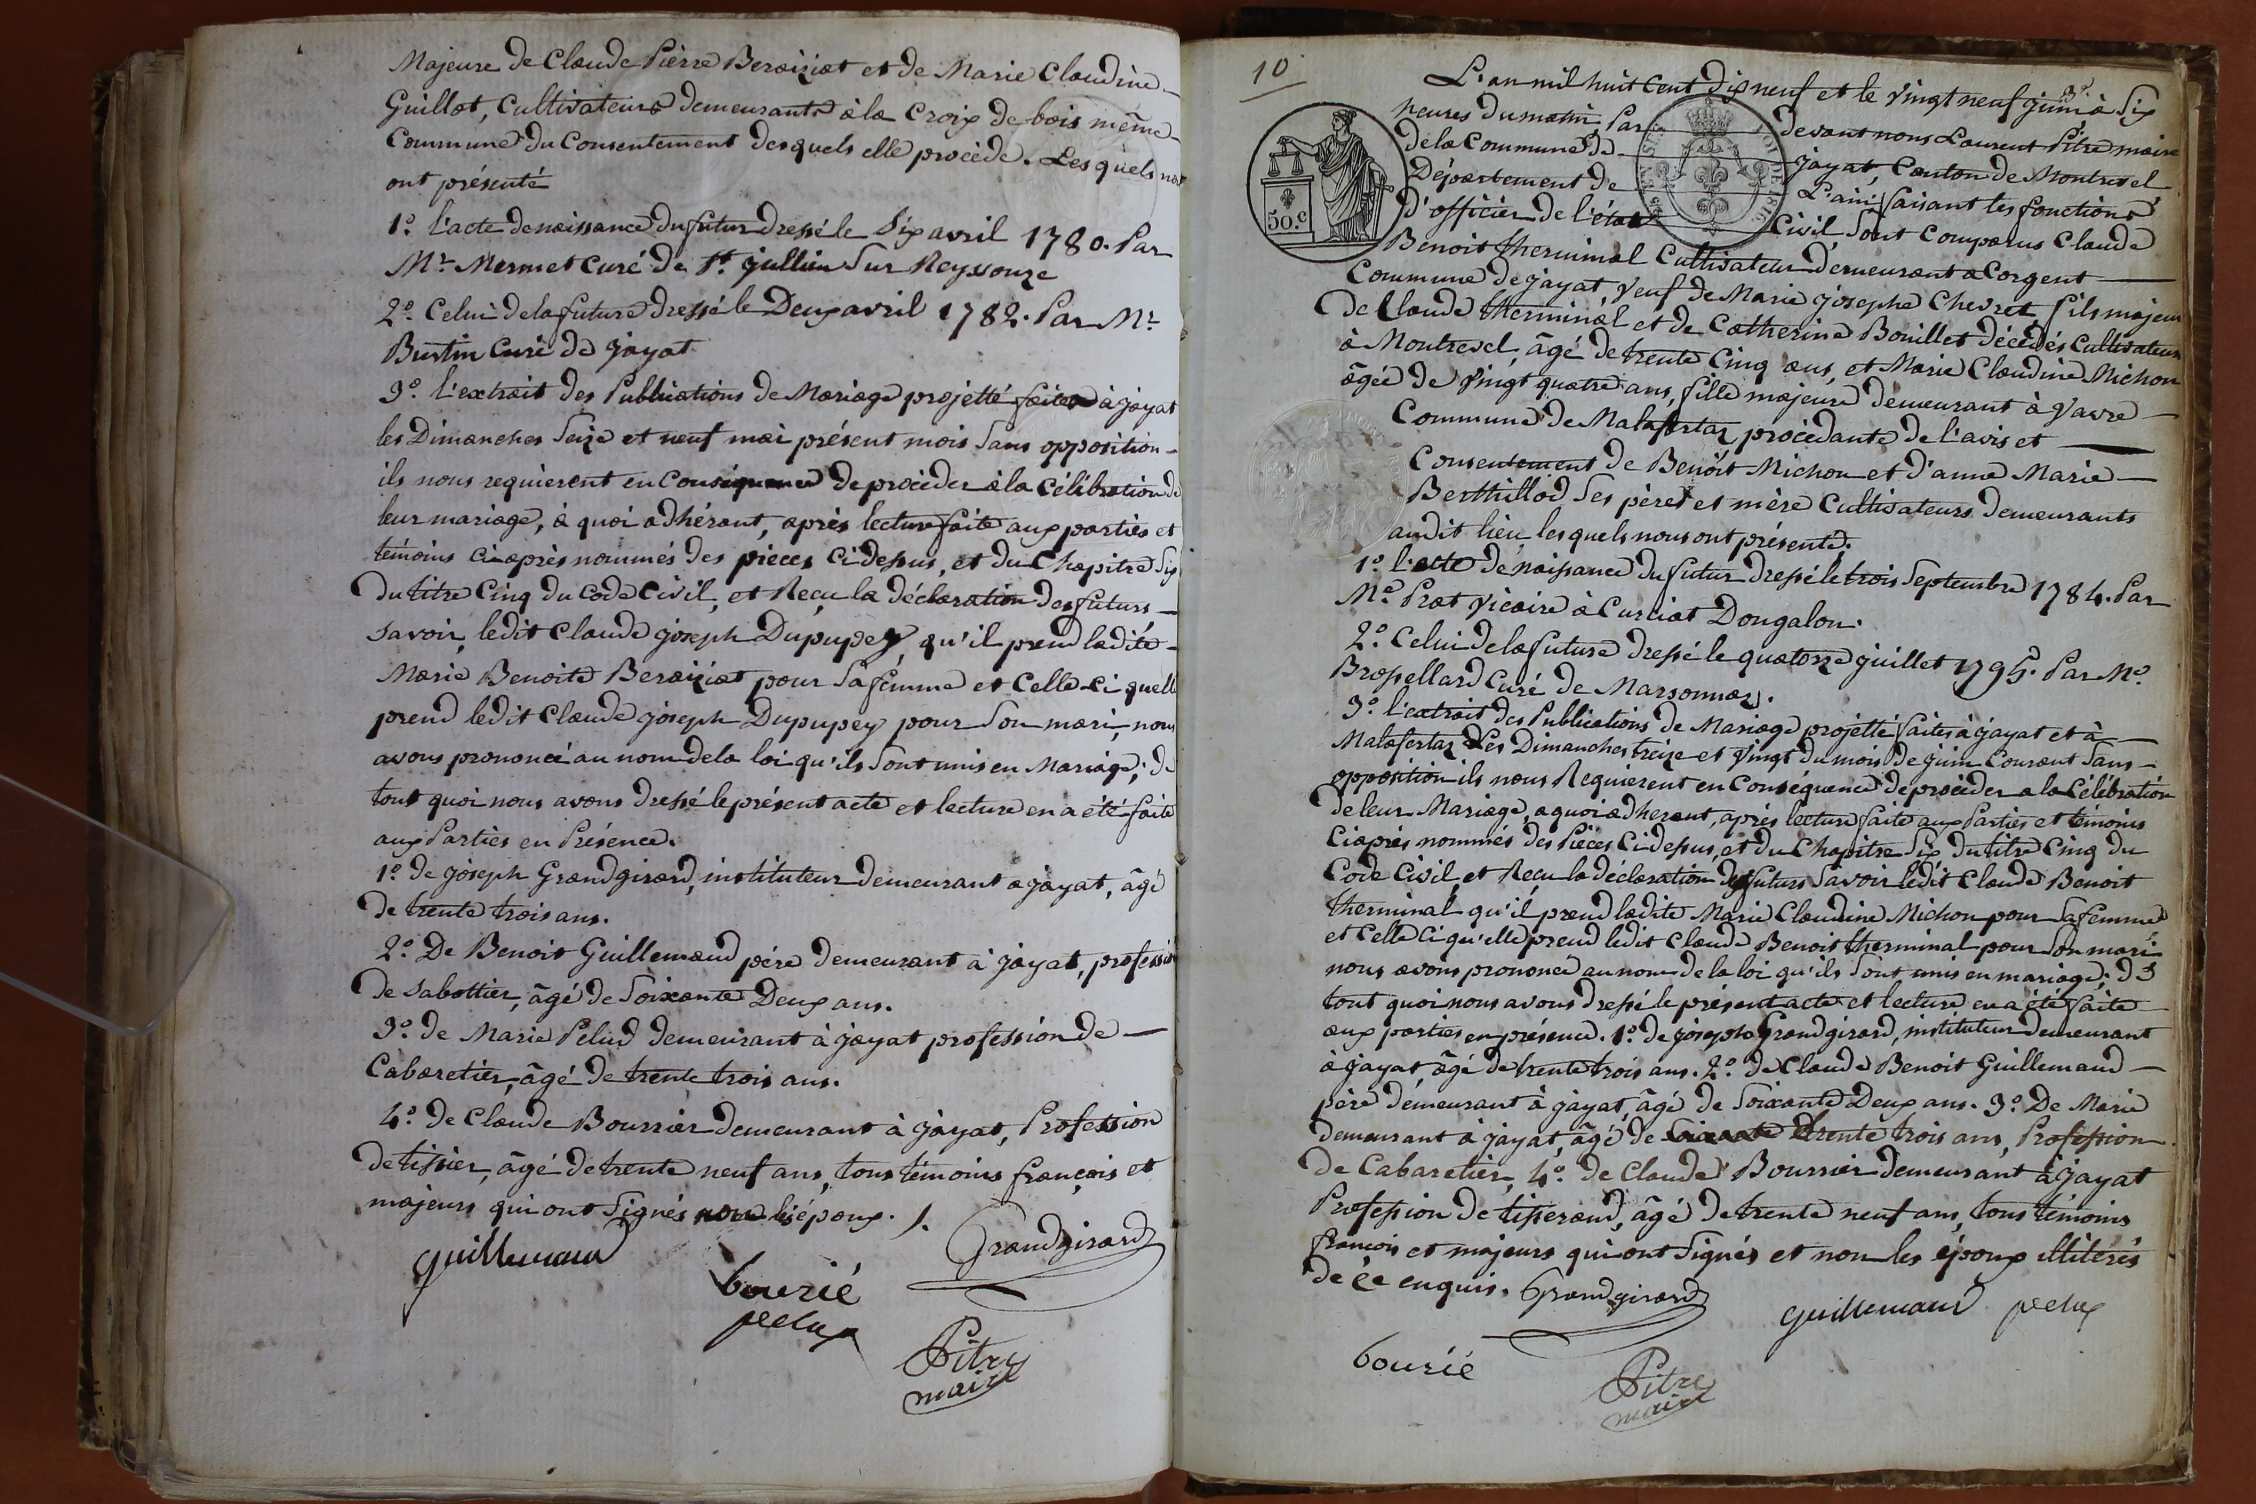 Majeure de Claude Pierre Beraiziat et de Marie Claudine
Guillot, Cultivateurs demeurants à la Croix de bois même
Commune du Consentement desquels elle procède. Les quels nous
ont présenté
1.º l'acte de naissance du futur dressé le Six avril 1780. Par
Mr. Mermet Curé de St. Jullien Sur Reyssouze
2.º Celui de la future dressé le Deux avril 1782. Par Mr.
Burtin Curé de Jayat.
3.º l'extrait des Publications de Mariage projetté faites à jayat
les Dimanches Seize et neuf mai présent mois Sans opposition
ils nous requierent en Conséquence de procéder à la Célébration de
leur mariage, à quoi adhérant, après lecture faite aux parties et
témoins ci après nommés des pièces Ci dessus, et du Chapitre Six
du titre Cinq du Code Civil, et Reçu la déclaration des futurs
savoir, ledit Claude joseph Dupupey, qu'il prend ladite
Marie Benoite Beraiziat pour Sa femme et Celle-ci quelle
prend ledit Claude joseph Dupupey pour Son mari, nous
avons prononcé au nom de la loi qu'ils Sont unis en Mariage; de
tout quoi nous avons dressé le présent acte et lecture en a été faite
aux Parties en Présence.
1.º de joseph Grandgirard, instituteur demeurant a jayat, âgé
de trente trois ans.
2.º De Benoit Guillemaud père demeurant à jayat, profession
de Sabottier, âgé de Soixante Deux ans.
3.º de Marie Pelud demeurant à jayat profession de
Cabaretier, âgé de trente trois ans.
4.º de Claude Bourrier demeurant à jayat, Profession
de tissier, âgé de trente neuf ans, tous témoins françois et
majeurs qui ont Signés non les époux.
Grandgirard
guillemaud
bourié
pelux
Pitre
maire
10
L'an mil huit Cent dix neuf et le Vingt neuf juin à Six
heures du matin, Par devant nous Laurent Pitre maire
de la Commune de jayat, Canton de Montrevel
Département de L'ain faisant les fonctions
d'officier de l'état Civil, Sont Comparus Claude
50.c
Benoit therminal Cultivateur demeurant a Corgent
Commune de jayat, Veuf de Marie josephe Chevret fils majeur
de Claude therminal et de Catherine Bouillet décédés Cultivateurs
à Montrevel, âgé de trente Cinq ans, et Marie Claudine Michon
âgée de Vingt quatre ans, fille majeure demeurant à Vavre
Commune de Malafertaz procédante de l'avis et
Consentement de Benoit Michon et d'anne Marie
Berthillod Ses père et mère Cultivateurs demeurants
audit lieu, lesquels nous ont présenté.
1.º l'acte de naissance du futur dressé le trois Septembre 1784. Par
Mr. Prat Vicaire à Curciat Dongalon.
2.º Celui de la future dressé le quatorze juillet 1795. Par Mr.
Brossellard Curé de Marsonnaz.
3.º l'extrait des Publications de Mariage projetté faites à jayat et à
Malafertaz Les Dimanches treize et Vingt du mois de juin Courant Sans
opposition ils nous Requierent en Conséquence de procéder a la Célébration
de leur Mariage, a quoi adherant, après lecture faite aux Parties et témoins
Ci après nommés des Pièces Ci dessus, et du Chapitre Six du titre Cinq du
Code Civil, et Reçu la déclaration des futurs Savoir ledit Claude Benoit
therminal qu'il prend ladite Marie Claudine Michon pour Sa femme
et Celle Ci qu'elle prend ledit Claude Benoit therminal pour Son mari
nous avons prononcé au nom de la loi qu'ils Sont unis en mariage; de
tout quoi nous avons dressé le présent acte et lecture en a été faite
aux parties en présence. 1.º de joseph Grandgirard, instituteur demeurant
à jayat, âgé de trente trois ans. 2.º de Claude Benoit Guillemaud
père demeurant à jayat, âgé de Soixante Deux ans. 3.º De Marie
demeurant à jayat, âgé de trente trois ans, Profession
de Cabaretier, 4.º de Claude Bourrier demeurant à jayat
Profession de tisserand, âgé de trente neuf ans, tous témoins
françois et majeurs qui ont Signés et non les époux illitérés
de Ce enquis. Grandgirard
guillemaud pelux
bourié
Pitre
maire